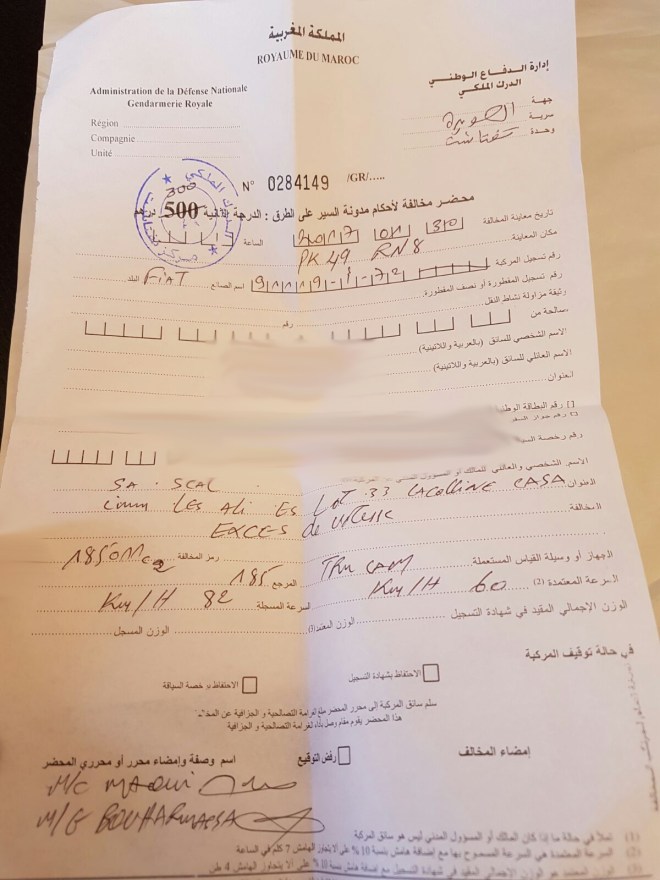 المملكة المغربية
ROYAUME DU MAROC
Administration de la Défense Nationale
Gendarmerie Royale
Région
Compagnie
Unité
إدارة الدفاع الوطني
الدرك الملكي
جهة
سرية الصويرة
وحدة
300
N° 0284149 /GR/.....
محضر مخالفة لأحكام مدونة السير على الطرق : الدرجة الثانية 500 درهم
تاريخ معاينة المخالفة 30 01 2017 الساعة
مكان المعاينة PK 49 RN8
رقم تسجيل المركبة 91119-1-72 اسم الصانع FiAT البلد
رقم تسجيل المقطورة أو نصف المقطورة
وثيقة مزاولة نشاط النقل رقم
صالحة من
الاسم الشخصي للسائق (بالعربية واللاتينية)
الاسم العائلي للسائق (بالعربية واللاتينية)
العنوان
[ ] رقم البطاقة
رقم رخصة
الاسم الشخصي والعائلي للمالك أو المسؤول المدني
SA. SCAL
العنوان imm LES Ali ES Lot 33 LACOLLINE CASA
المخالفة EXCES de vitesse
رمز المخالفة
الجهاز أو وسيلة القياس المستعملة TRU CAM المرجع 185
السرعة المعتمدة (2) 60 Km/H السرعة المسجلة 82 Km/H
الوزن الإجمالي المقيد في شهادة التسجيل الوزن المعتمد(3) الوزن المسجل
في حالة توقيف المركبة
الاحتفاظ بشهادة التسجيل
الاحتفاظ برخصة السياقة
سلم سائق المركبة إلى محرر المحضر مبلغ الغرامة التصالحية و الجزافية عن
هذا المحضر يقوم مقام وصل بأداء الغرامة التصالحية و الجزافية
إمضاء المخالف
رفض التوقيع
اسم وصفة وإمضاء محرر أو محرري المحضر
M/C MAOUI
M/G BOUHARMASSA
(1) تملأ في حالة ما إذا كان المالك أو المسؤول المدني ليس هو سائق المركبة
(2) السرعة المعتمدة هي السرعة المسموح بها مع إضافة هامش بنسبة 10 % على ألا يتجاوز الهامش 7 كلم في الساعة
(3) الوزن المعتمد هو الوزن الإجمالي المقيد في شهادة التسجيل مع إضافة هامش بنسبة 10 % على ألا يتجاوز الهامش 4 طن